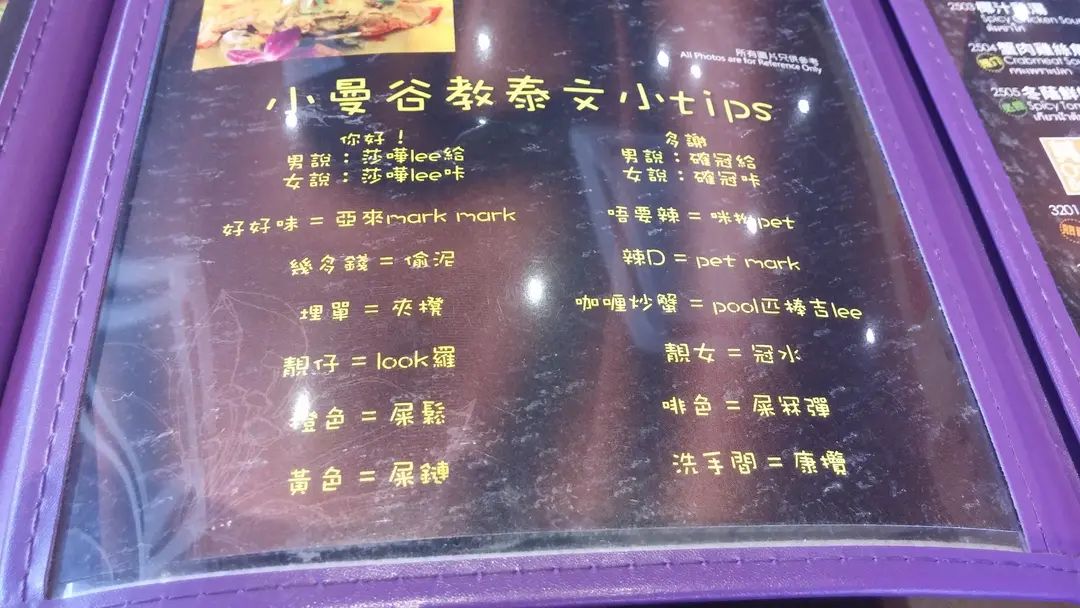 所有圖片只供參考
All Photos are for Reference Only
小曼谷教泰文小tips
你好！
男說：莎嘩lee給
女說：莎嘩lee咔
多謝
男說：確冠給
女說：確冠咔
好好味 = 亞來mark mark
唔要辣 = 咪拗pet
幾多錢 = 偷泥
辣D = pet mark
埋單 = 夾欖
咖喱炒蟹 = pool匹棒吉lee
靚仔 = look羅
靚女 = 冠水
橙色 = 屎鬆
啡色 = 屎冧彈
黃色 = 屎鏈
洗手間 = 康欖
2503 椰汁雞湯
Spicy Chicken Sou
2504 蟹肉雞絲
Crabmeat Sou
2505 冬蔭鮮
Spicy Tom
3201